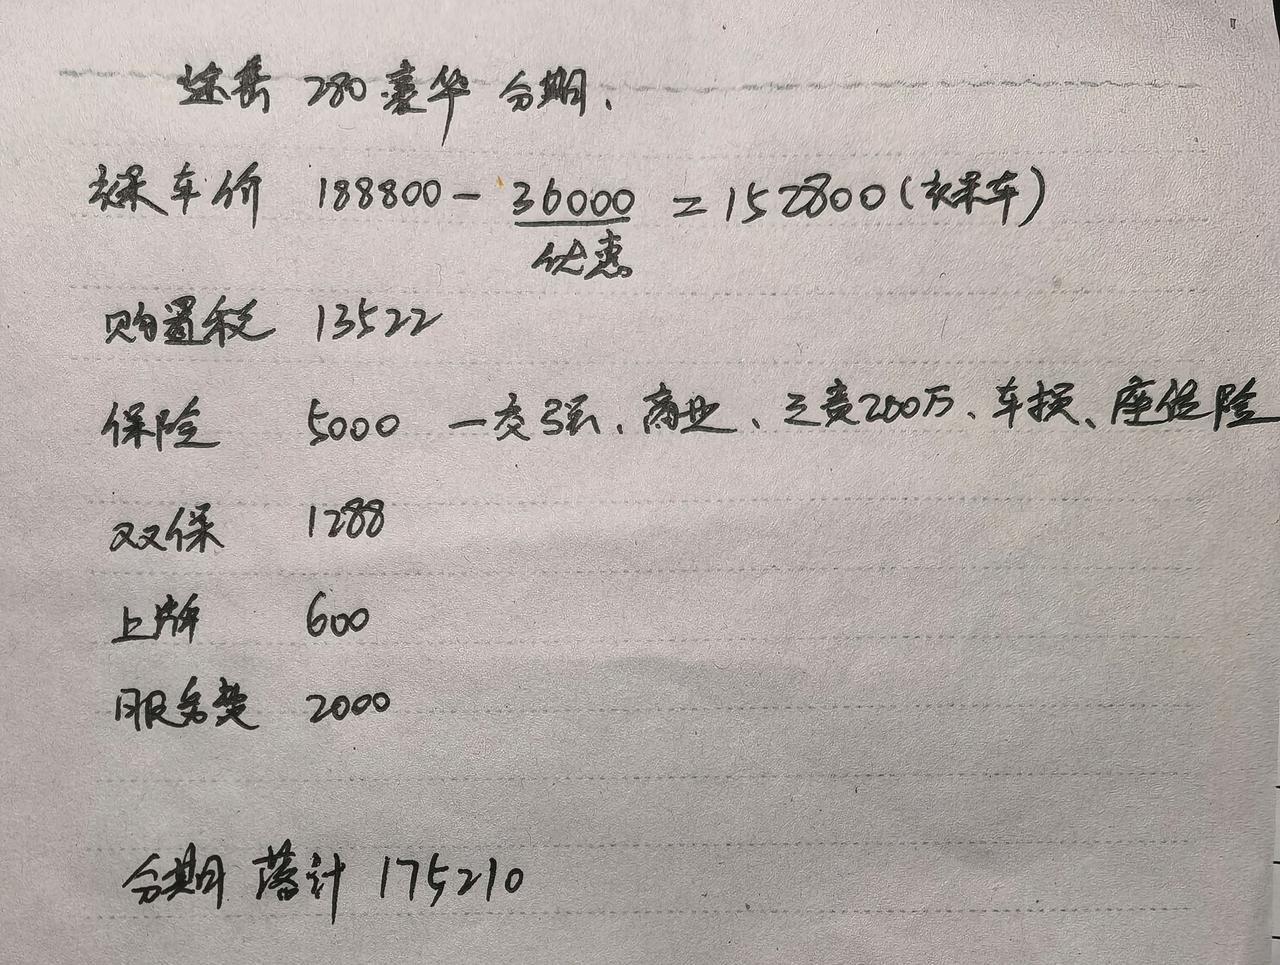 途岳 280豪华 分期.
裸车价 188800-36000=152800(裸车)
优惠
购置税 13522
保险 5000 一交强、商业、三责200万、车损、座位险
双保 1288
上牌 600
服务费 2000
分期 落计 175210